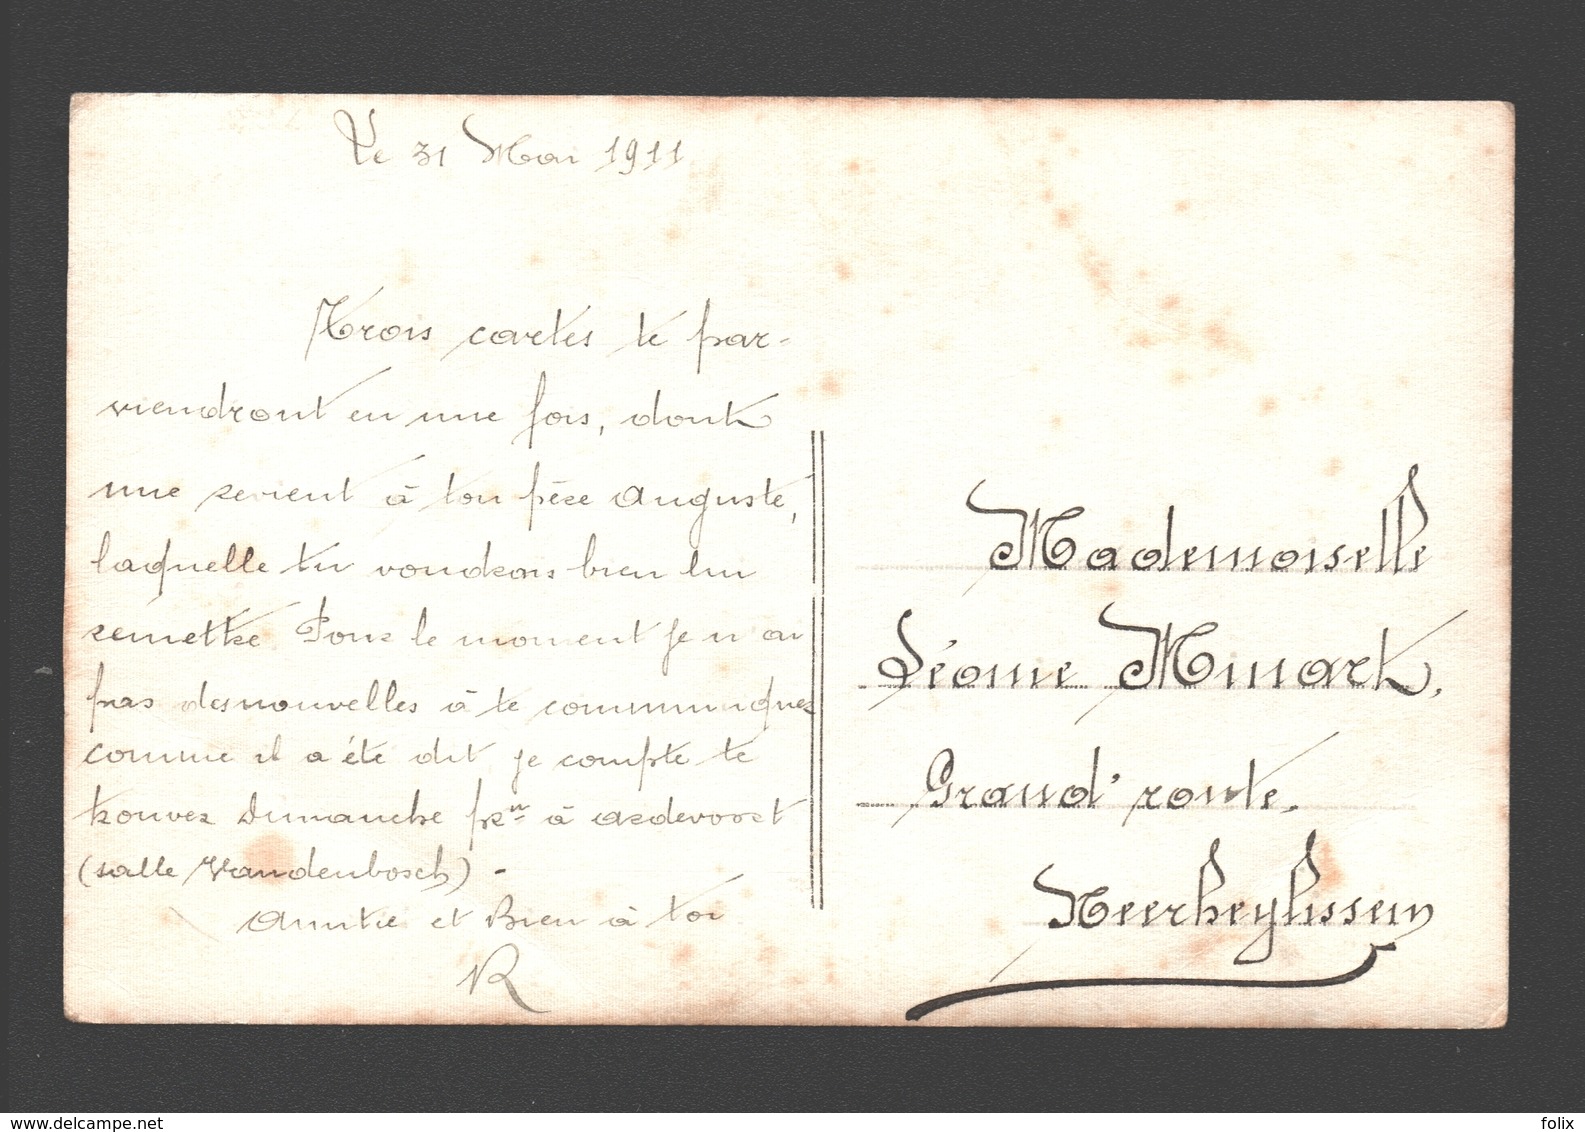 Le 31 Mai 1911
Trois cartes te par-
viendront en une fois, dont
une revient à ton père Auguste,
laquelle tu voudras bien lui
remettre. Pour le moment je n'ai
pas des nouvelles à te communiquer
comme il a été dit, je compte te
trouver Dimanche à
(salle Vandenbosch) -
Amitié et Bien à toi
R
Mademoiselle
Léonie
Grand' route.
Neerheylissem
www.delcampe.net
folix